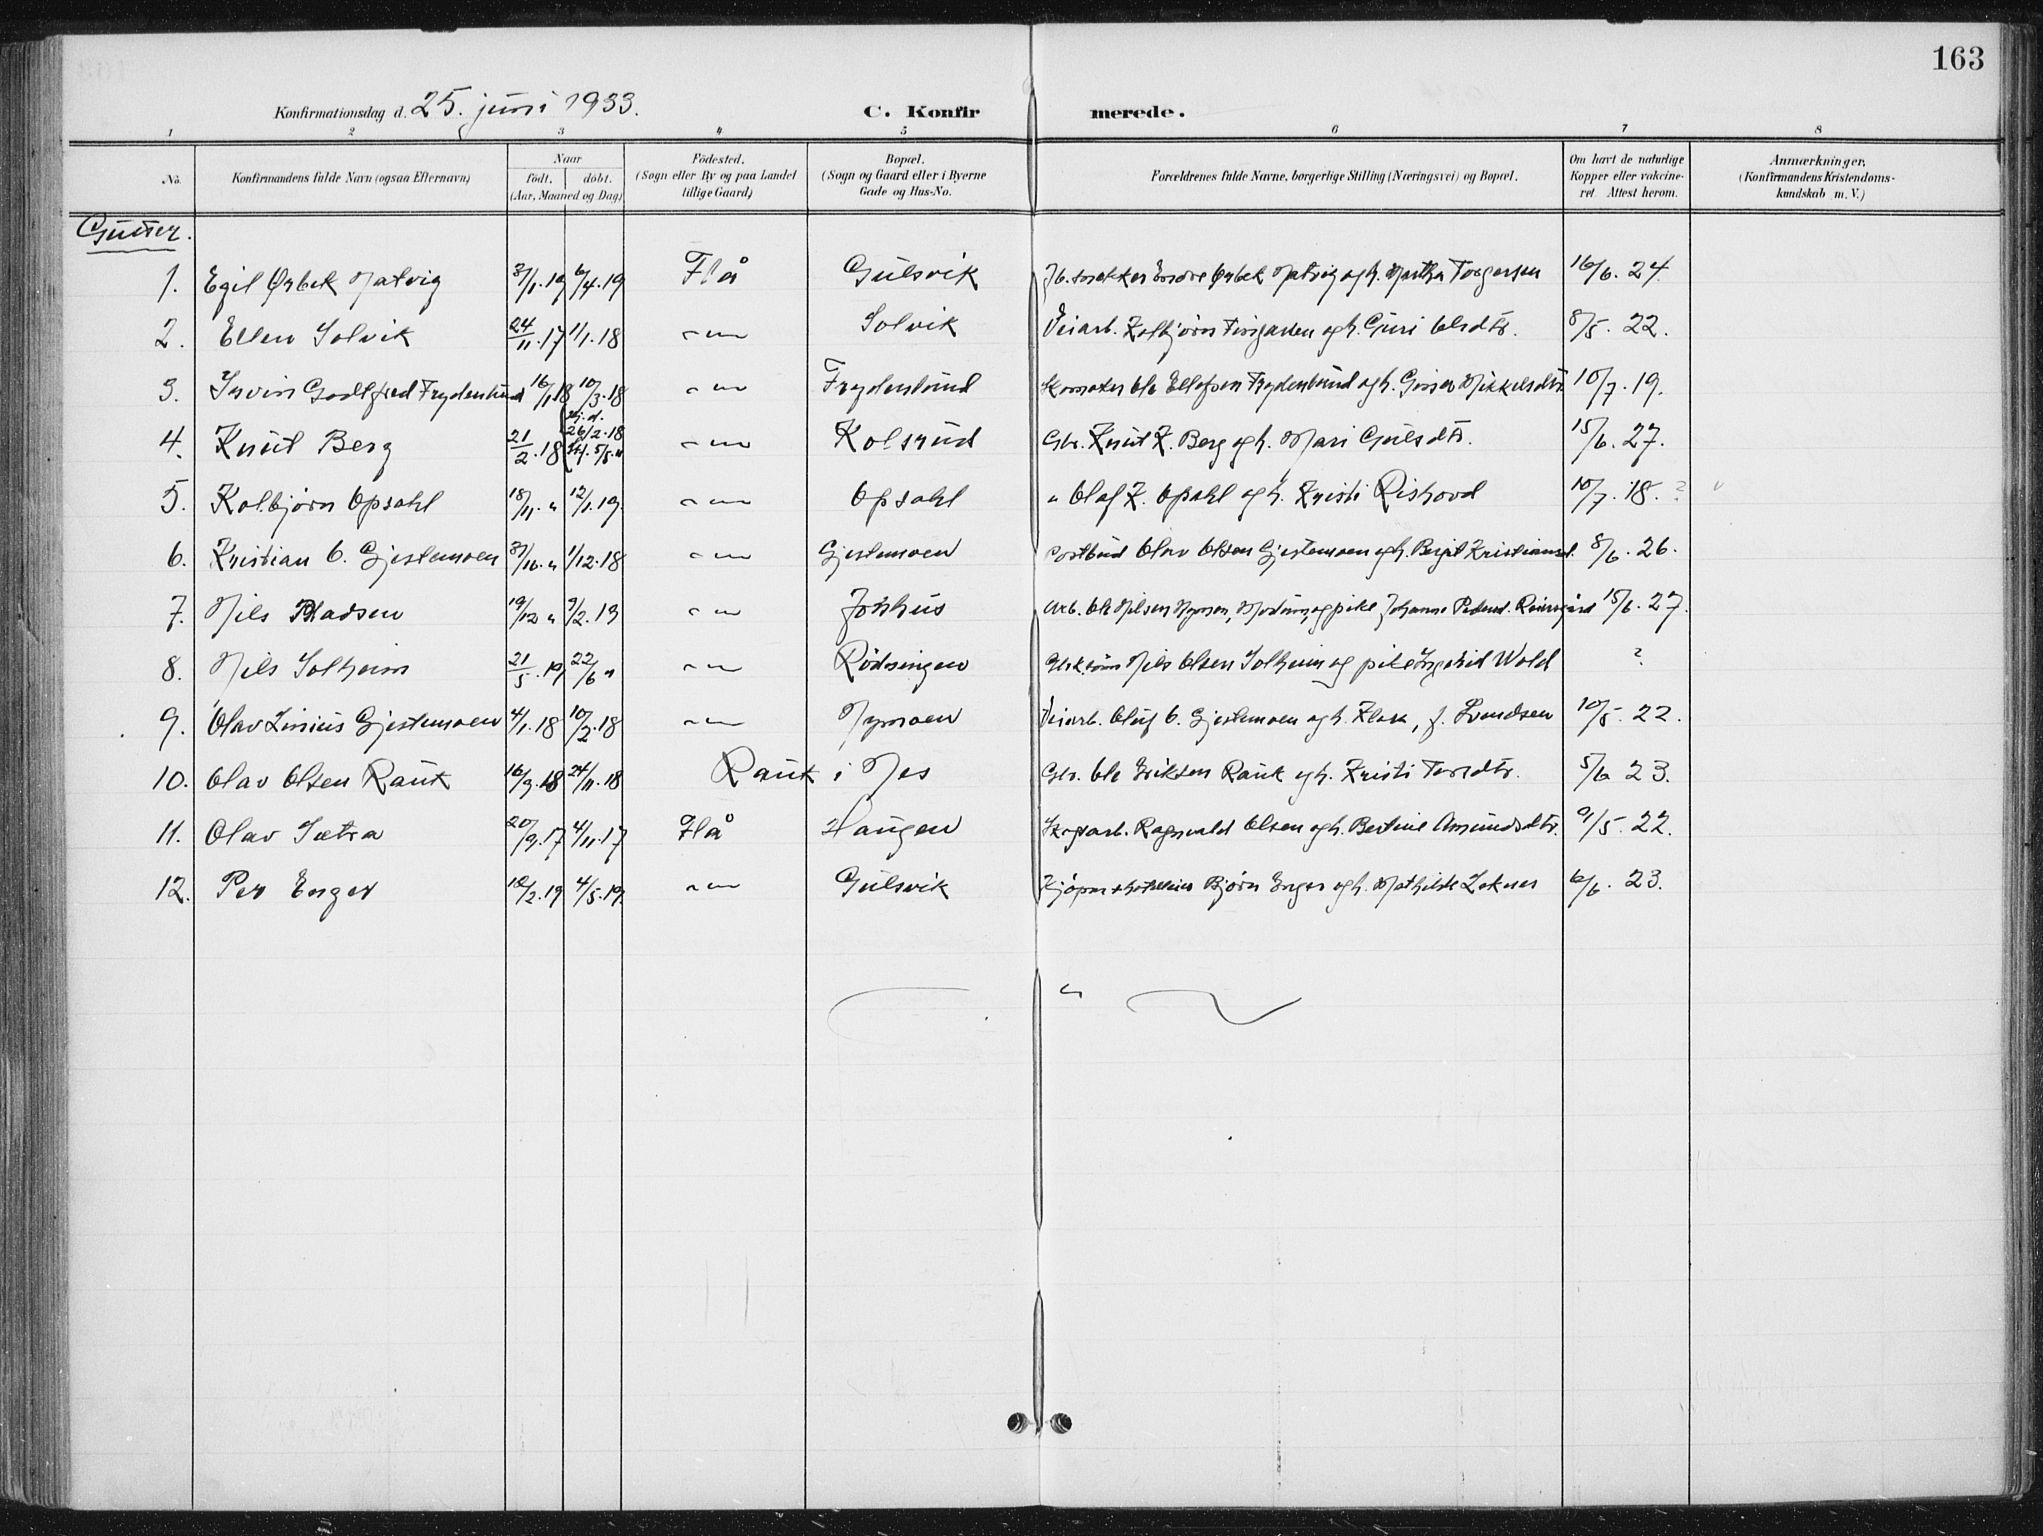 163
Konfirmationsdag d. 25. juni 1933. C. Konfir merede.
1 2 3 4 5 6 7 8
No. Konfirmandens fulde Navn (ogsaa Efternavn) Naar födt. döbt. (Aar, Maaned og Dag) Födested. (Sogn eller By og paa Landet tillige Gaard) Bopæl. (Sogn og Gaard eller i Byerne Gade og Hus-No. Forældrenes fulde Navne, borgerlige Stilling (Næringsvei) og Bopæl. Om havt de naturlige Kopper eller vakcineret Attest herom. Anmærkninger. (Konfirmandens Kristendomskundskab m. V.)
Gutter.
1. Egil Ørbek Matvig 3/1.19 6/4.19 Flå Gulsvik Ørbek Matvig og h. Martha Torgersen 16/6. 24.
2. Ellen Solvik 24/11.17 1/1.18 -"- Solvik Veiarb. Kolbjørn og h. Guri Olsdtr. 8/5. 22.
3. Godtfred Frydenlund 16/1.18 10/3.18 -"- Frydenlund Skomaker Ole Ellefsen Frydenlund og h. Mikkelsdtr. 10/7. 19.
4. Knut Berg 21/2.18 hj.d. 26/2.18 5/5." -"- Kolsrud Gbr. Knut K. Berg og h. Mari Gulsdtr. 15/6. 27.
5. Kolbjørn Opsahl 18/11. " 12/1.19. -"- Opsahl " Olaf K. Opsahl og h. Kristi Rishovd 10/7. 18. ?
6. Kristian O. Gjestemoen 3/10. " 1/12.18 -"- Gjestemoen Postbud Olav Olsen Gjestemoen og h. Birgit Kristiansd. 8/6. 26.
7. Nils Madsen 19/12 " 9/2.19 -"- Arb. Ole Nilsen Modum, og pike Johanne Pedersd. 15/6. 27.
8. Nils Solheim 21/5.19 22/6 " -"- Rödningen Nils Olsen Solheim og pike Ingrid Wold ?
9. Olav Linius Gjestemoen 4/1.18 10/2.18 -"- Nymoen Veiarb. Oluf O. Gjestemoen og h. Klara, f. Svendsen 10/5. 22.
10. Olav Olsen Rauk 16/9.18 24/11.18 Rauk i Nes Gbr. Ole Eriksen Rauk og h. Kristi Torsdtr. 5/6 23.
11. Olav Sætra 20/9.17 4/11.17 Flå Haugen Skogsarb. Ragnvald Olsen og h. Bertine Amundsdtr. 9/5. 22.
12. Per Enger 18/2.19 4/5.19. -"- Gulsvik Kjöpm. Björn Enger og h. Mathilde 6/6. 23.